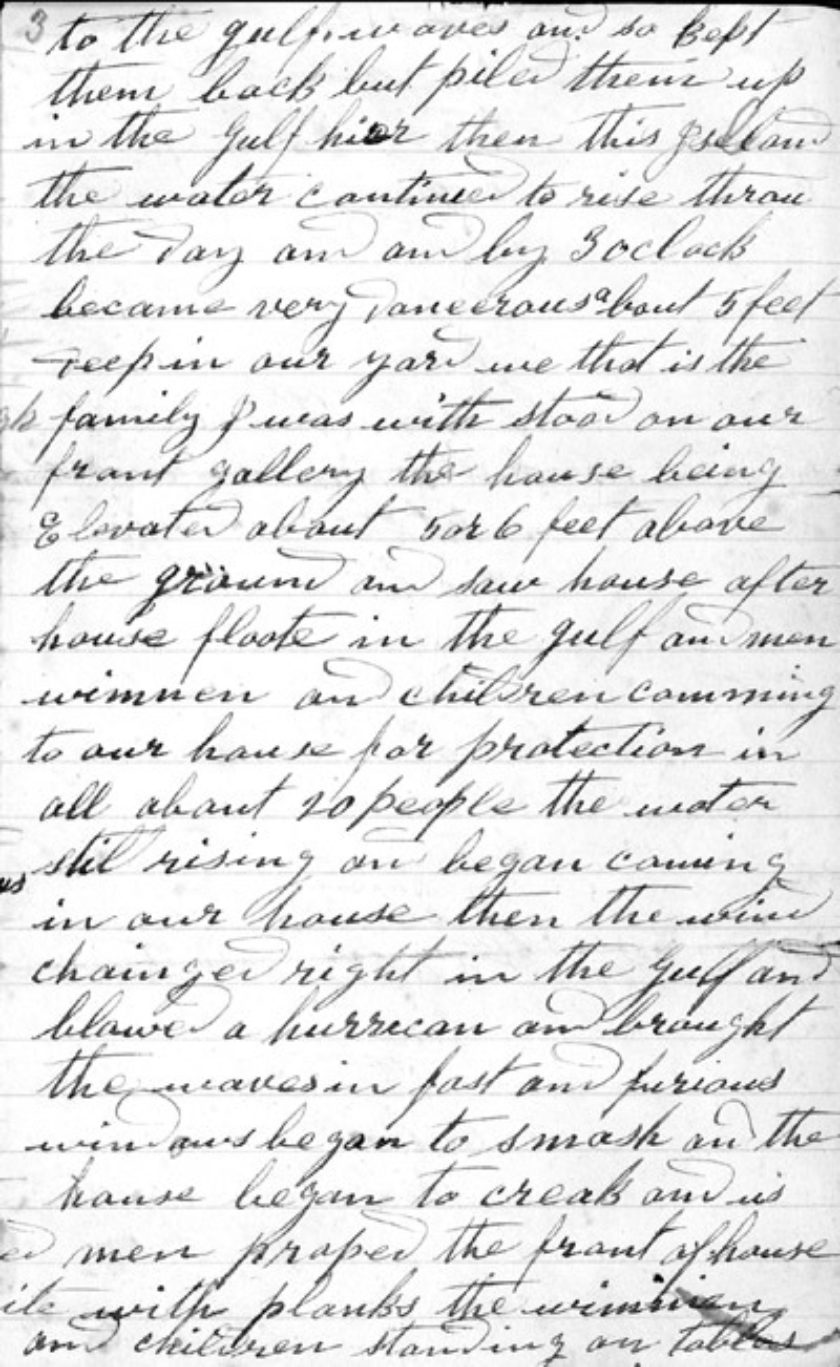 3 to the gulf waves and so kept
them back but piled them up
in the gulf hier then this Iselland
the water continued to rise throu
the day and and by 3 oclock
became very dancerous about 5 feet
deep in our yard we that is the
family I was with stood on our
front gallery the house being
Elevated about 5 or 6 feet above
the ground and saw house after
house floote in the gulf and men
wimnen and children comming
to our house for protection in
all about 20 people the water
stil rising and began coming
in our house then the wind
chainged right in the gulf and
blowed a hurrican and brought
the waves in fast and furious
windows began to smash and the
house began to creak and us
men proped the front of house
with planks the wimmen
and children standing on tables